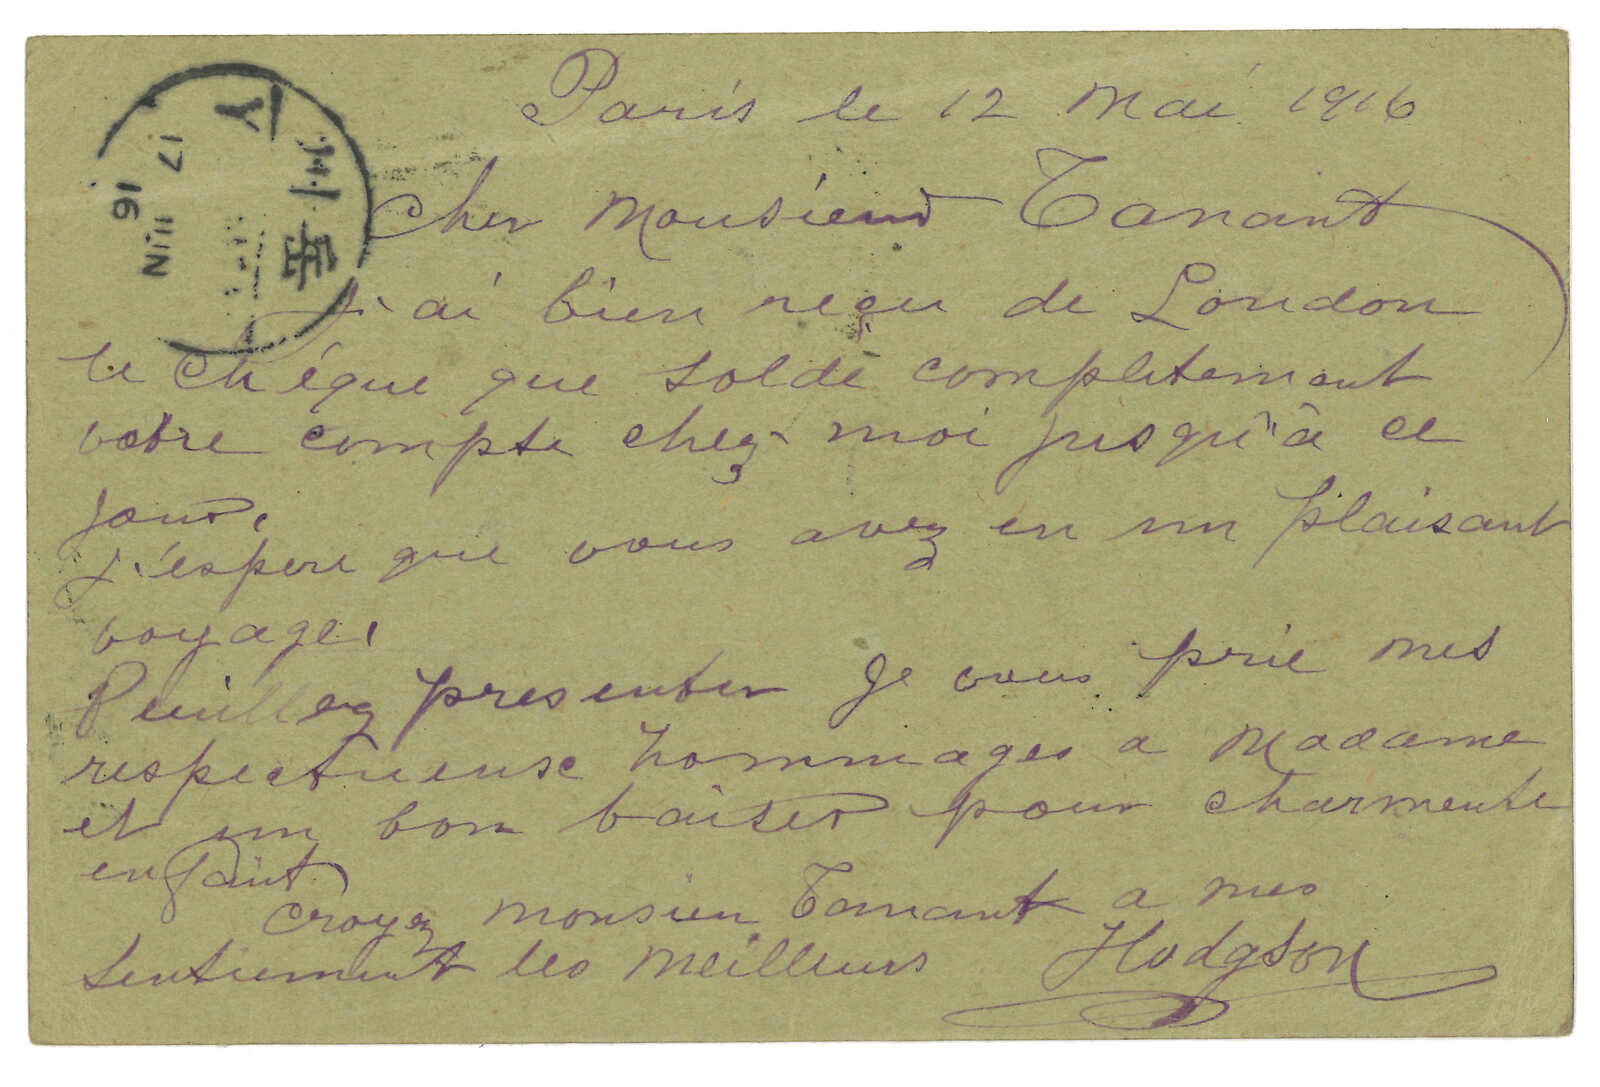 Paris le 12 Mai 1916
Cher Monsieur Tanant
J'ai bien reçu de London
le chéque que solde completement
votre compte chez moi jusqu'à ce
jour.
J'espere que vous avez eu un plaisant
voyage.
Veuillez presenter Je vous prie mes
respectueuse hommages a Madame
et un bon baiser pour charmente
enfant
Croyez monsieur Tanant a mes
sentiement les meilleurs Hodgson
17 JUIN 16